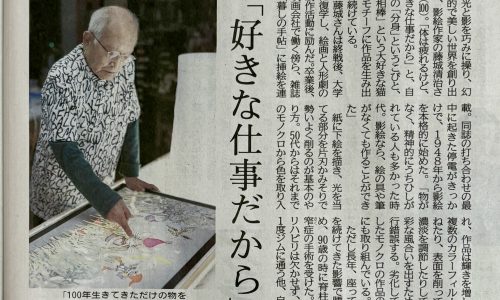 「好きな仕事だから」
光と影を巧みに操り、幻
的で美しい世界を創り出
影絵作家の藤城清治さ
100。「体は疲れるけど、
きな仕事だから」と、自
の「分身」というこびと、
相棒」という大好きな猫
モチーフに作品を生み出
続けている。
藤城さんは終戦後、大学
復学し、絵画と人形劇の
作活動に励んだ。卒業後、
画会社で働く傍ら、雑誌
暮しの手帖」に挿絵を連
載。同誌の打ち合わせの最
中に起きた停電がきっか
けで、1948年から影絵
を本格的に始めた。「物が
なく、精神的にうちひしが
れている人も多かった時
代。影絵なら、絵の具や筆
がなくても作ることができ
た」
紙に下絵を描き、光を当
てる部分を片刃かみそりで
勢いよく削るのが基本のや
り方。50代からはそれまで
のモノクロから色を取り入
れ、作品は輝きを増
複数のカラーフィル
ねたり、表面を削っ
濃淡を調節したりし
彩な風合いを出すた
行錯誤する。劣化し
したモノクロの作品
にも取り組んでいる
ただし長年、座っ
を続けてきた影響で
め、90歳の時に脊柱
窄症の手術を受けた。
リハビリは欠かせず、
1度ジムに通う他、自
「100年生きてきただけの物を